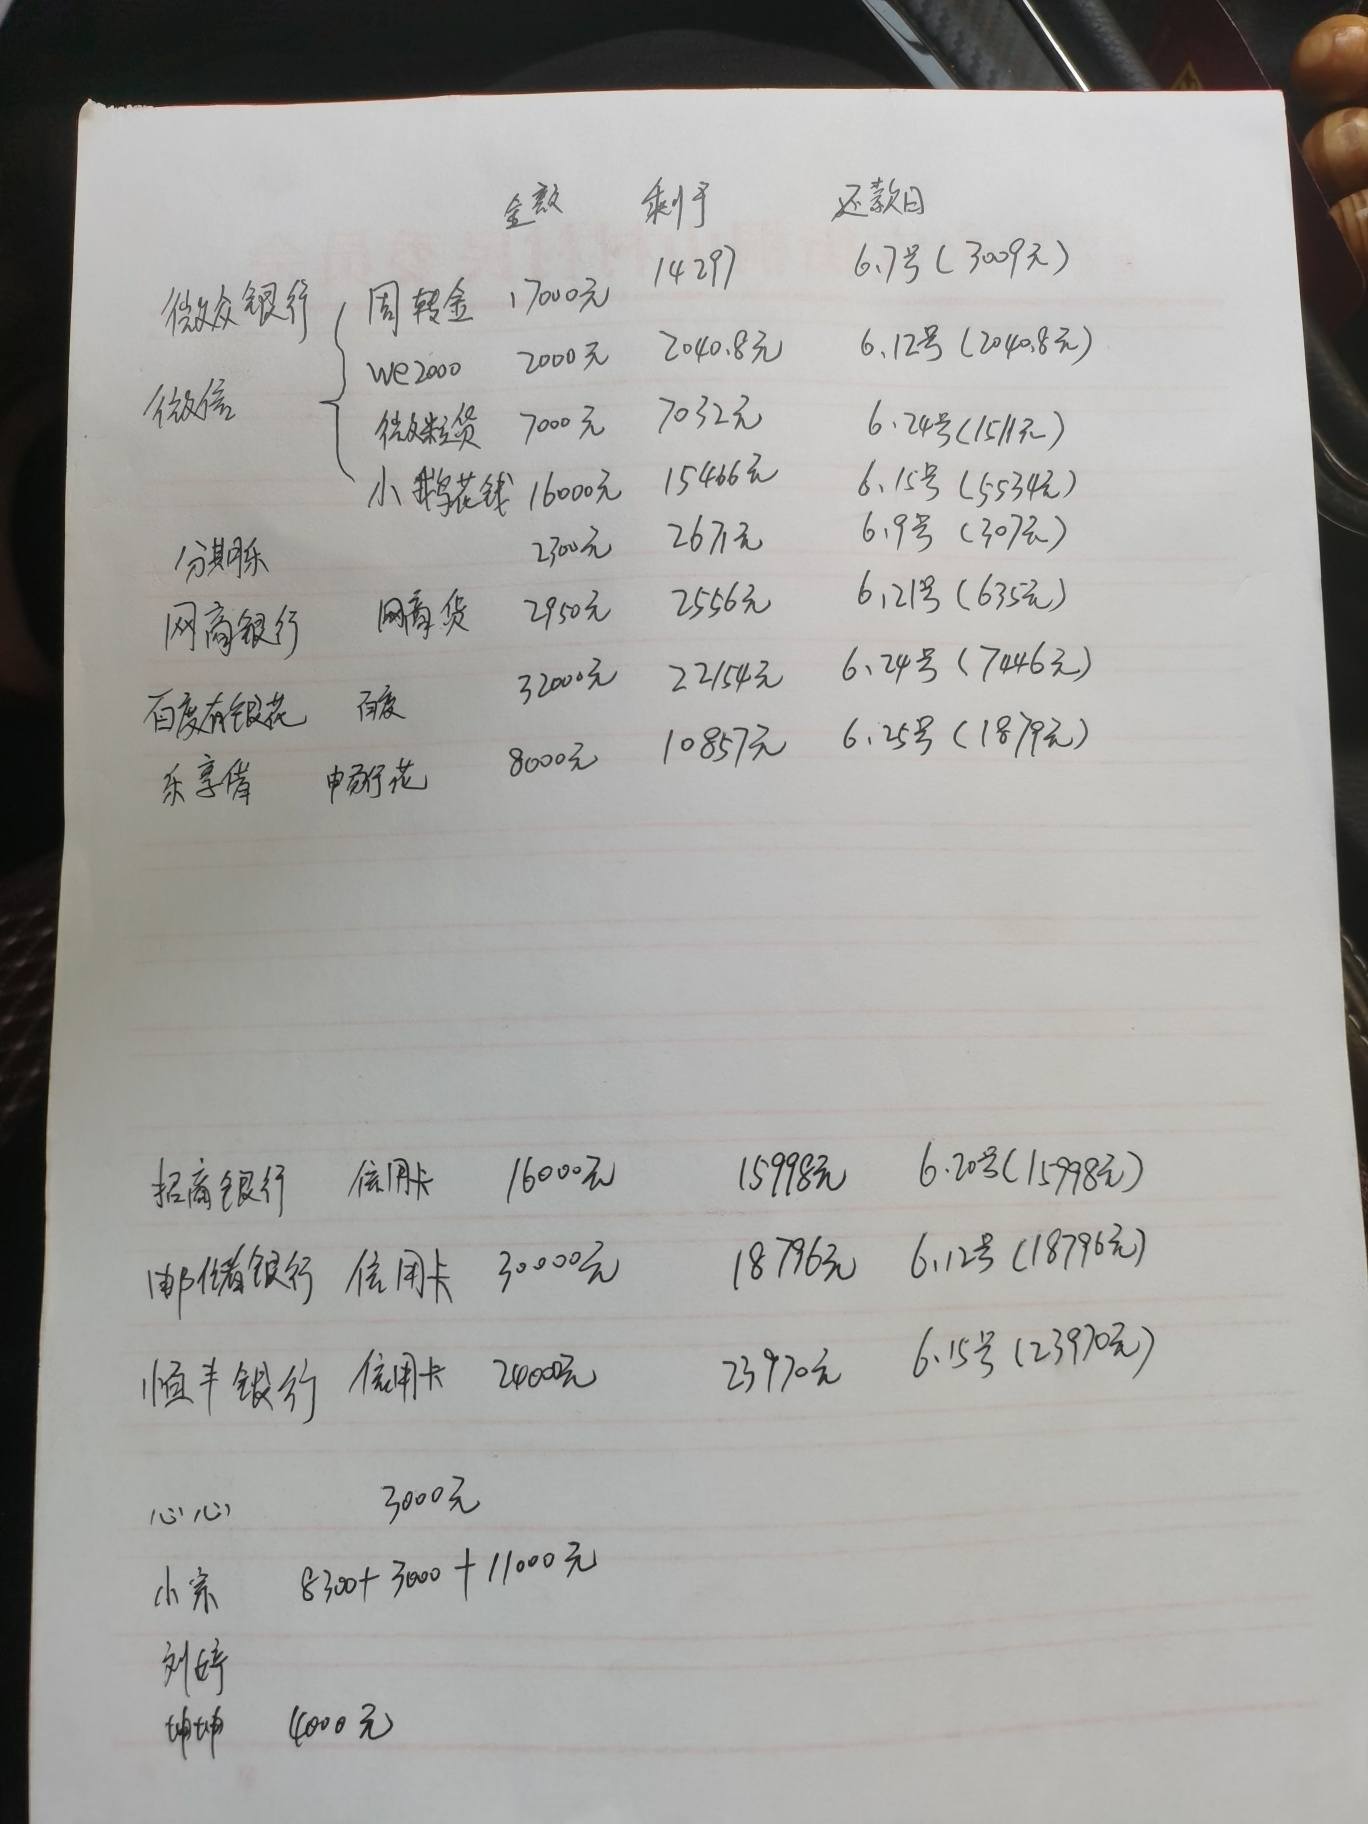 金额 剩于 还款日
微众银行 周转金 17000元 14297 6.7号(3009元)
we2000 2000元 2040.8元 6.12号(2040.8元)
微信
微粒贷 7000元 7032元 6.24号(1511元)
小鹅花钱 16000元 15466元 6.15号(5534元)
分期乐 2300元 2671元 6.9号(307元)
网商银行 网商贷 2950元 2556元 6.21号(635元)
百度有银花 百度 32000元 22154元 6.24号(7446元)
乐享借 申易行花 8000元 10857元 6.25号(1879元)
招商银行 信用卡 16000元 15998元 6.20号(15998元)
邮储银行 信用卡 30000元 18796元 6.12号(18796元)
恒丰银行 信用卡 24000元 23970元 6.15号(23970元)
心心 3000元
小宗 8300+3000+11000元
刘婷
坤坤 4000元